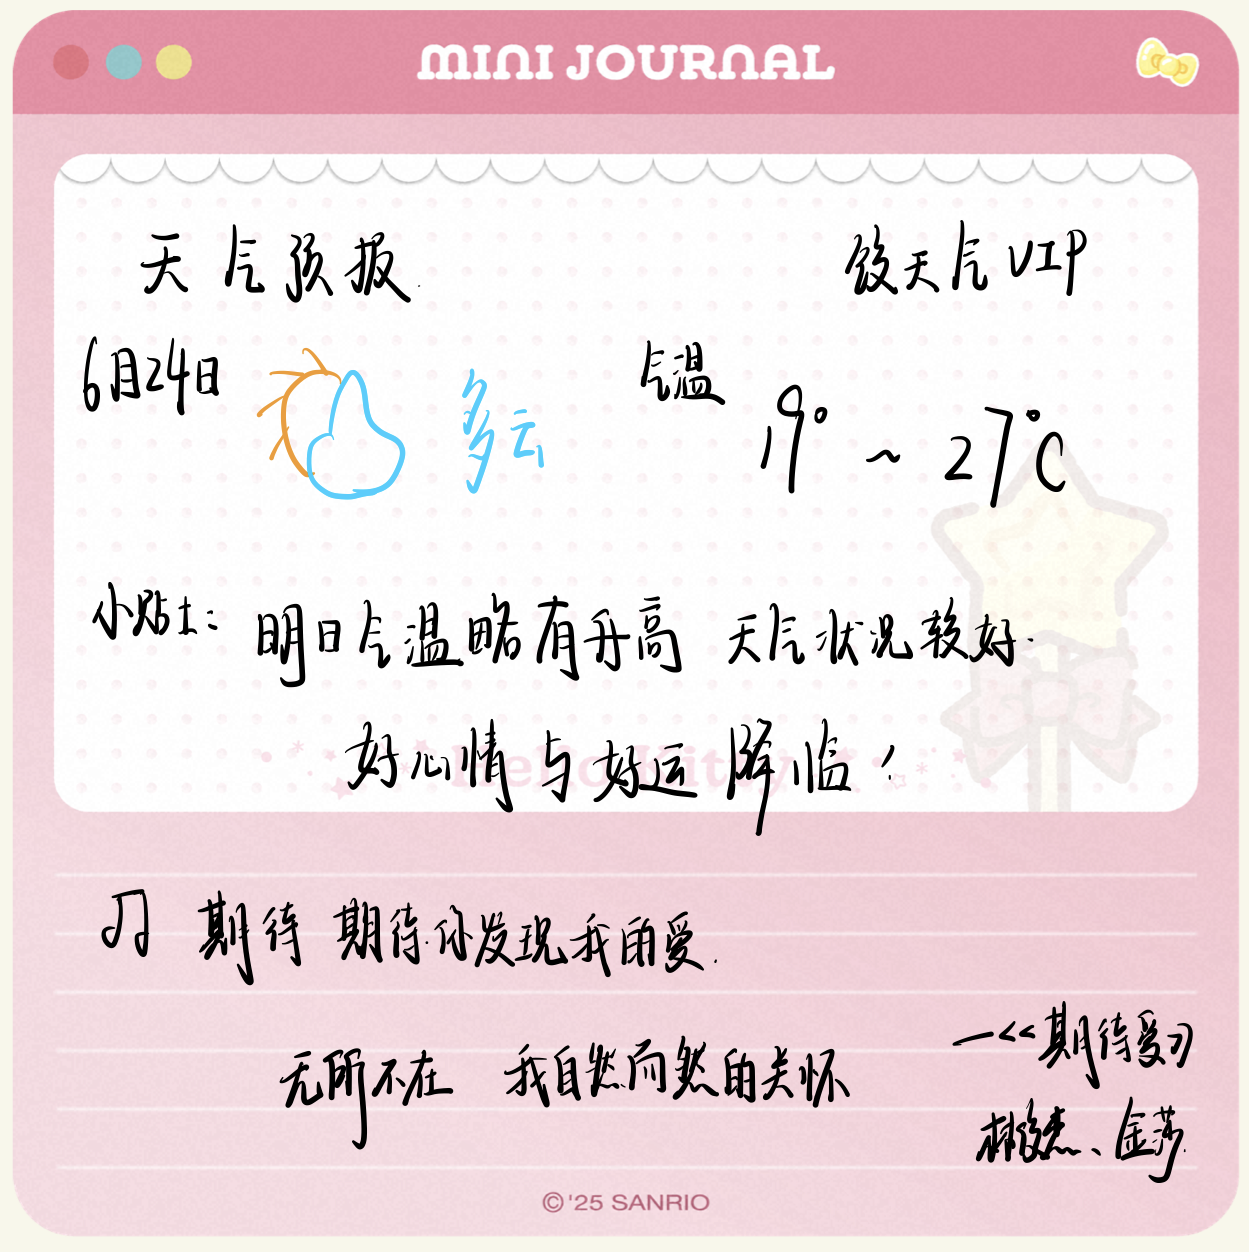 MINI JOURNAL
天气预报 饺天气VIP
6月24日 多云 气温 19°~27°C
小贴士: 明日气温略有升高 天气状况较好.
Hello Kitty
好心情与好运降临!
♫ 期待 期待你发现我的爱.
无所不在 我自然而然的关怀
—<<期待爱》
林俊杰、金莎.
© '25 SANRIO